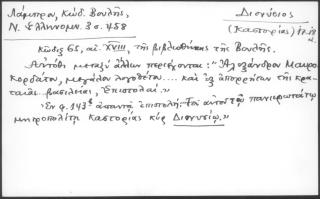 Λάμπρου, Κώδ. Βουλῆς,
Ν. Ἑλληνομν. 3 σ. 458
Διονύσιος
(Καστορίας)
Κῶδιξ 65, αἰ. XVIII, τῆς βιβλιοθήκης τῆς Βουλῆς.
Αὐτόθι μεταξὺ ἄλλων περιέχονται: "Ἀλεξάνδρου Μαυρο
κορδάτου, μεγάλου λογοθέτου.... καὶ ἐξ ἀπορρήτων τῆς κρα
ταιᾶς βασιλείας, Ἐπιστολαί."
Ἐν φ. 143 ἀπαντᾷ ἐπιστολή: "Τῷ αὐτῷ τῷ πανιερωτάτῳ
μητροπολίτῃ Καστορίας κὺρ Διονυσίῳ."